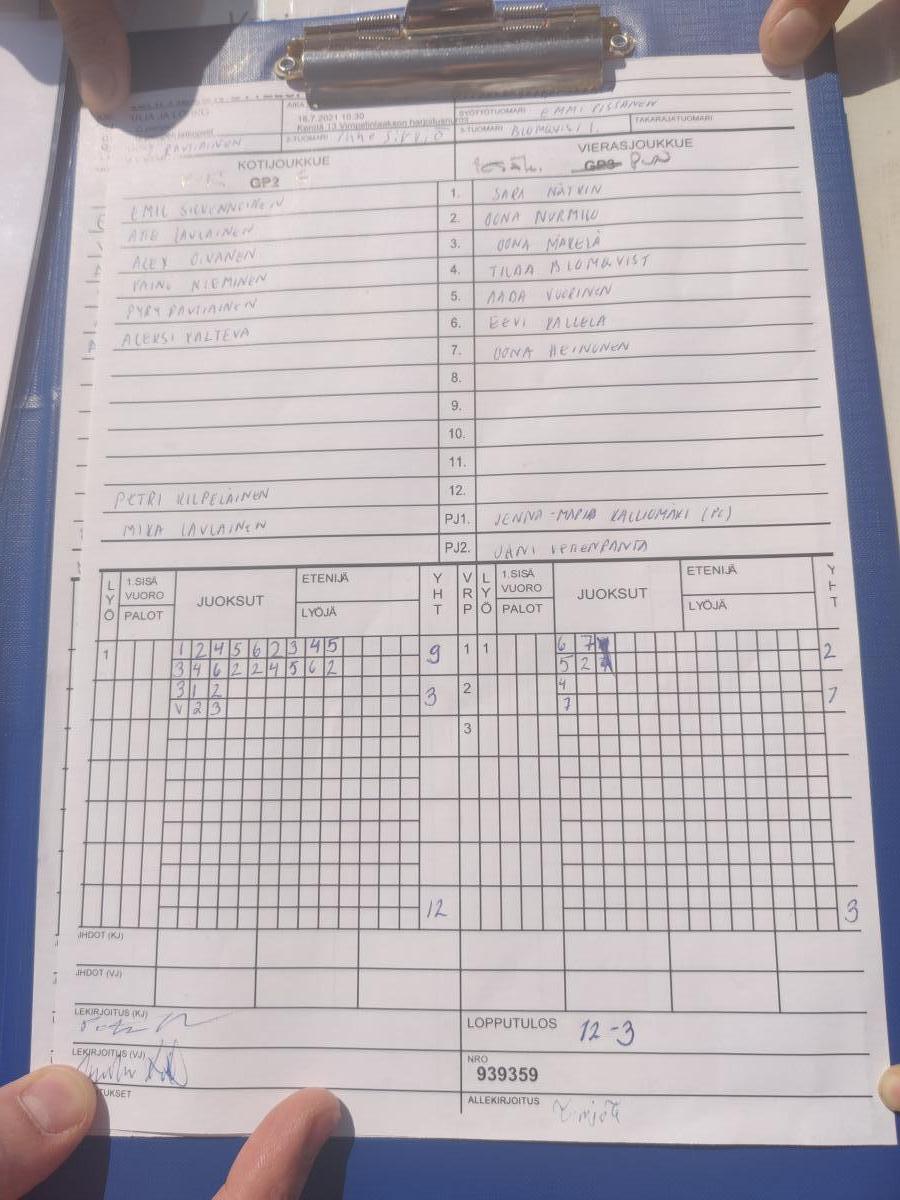 AIKA
16.7.2021 10.30
Kenttä 13 Vimpelinlaakson harjoitusnurmi
SYÖTTÖTUOMARI EMMI PISSANEN
2-TUOMARI
3-TUOMARI BLOMQVIST T.
TAKARAJATUOMARI
KOTIJOUKKUE
GP2
VIERASJOUKKUE
GP3
1. SARA NÄTKIN
2. ATTE LAULAINEN OONA NURMILO
3. ALEX OIVANEN OONA MÄKELÄ
4. VÄINÖ NIEMINEN TILDA BLOMQVIST
5. PYRY RAUTIAINEN AADA VUORINEN
6. ALEKSI VALTEVA EEVI KALLELA
7. OONA HEINONEN
8.
9.
10.
11.
12.
PETRI KILPELÄINEN PJ1. JENNA-MARIA KALLIOMÄKI (PC)
MIKA LAULAINEN PJ2. JANI VETENRANTA
LYÖ 1.SISÄ VUORO PALOT JUOKSUT ETENIJÄ LYÖJÄ YHT VRP LYÖ 1.SISÄ VUORO PALOT JUOKSUT ETENIJÄ LYÖJÄ YHT
1 1 2 4 5 6 2 3 4 5 9 1 1 6 7 2
3 4 6 2 2 4 5 6 2 5 2
3 1 2 3 2 4 1
V 2 3 7
3
12 3
JHDOT (KJ)
JHDOT (VJ)
LEKIRJOITUS (KJ)
LOPPUTULOS 12-3
LEKIRJOITUS (VJ)
NRO
939359
TUKSET
ALLEKIRJOITUS